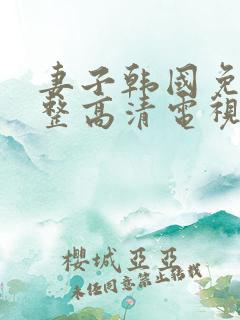 妻子韩国免
整高清电视
樱城亚亚
未经同意禁止转载